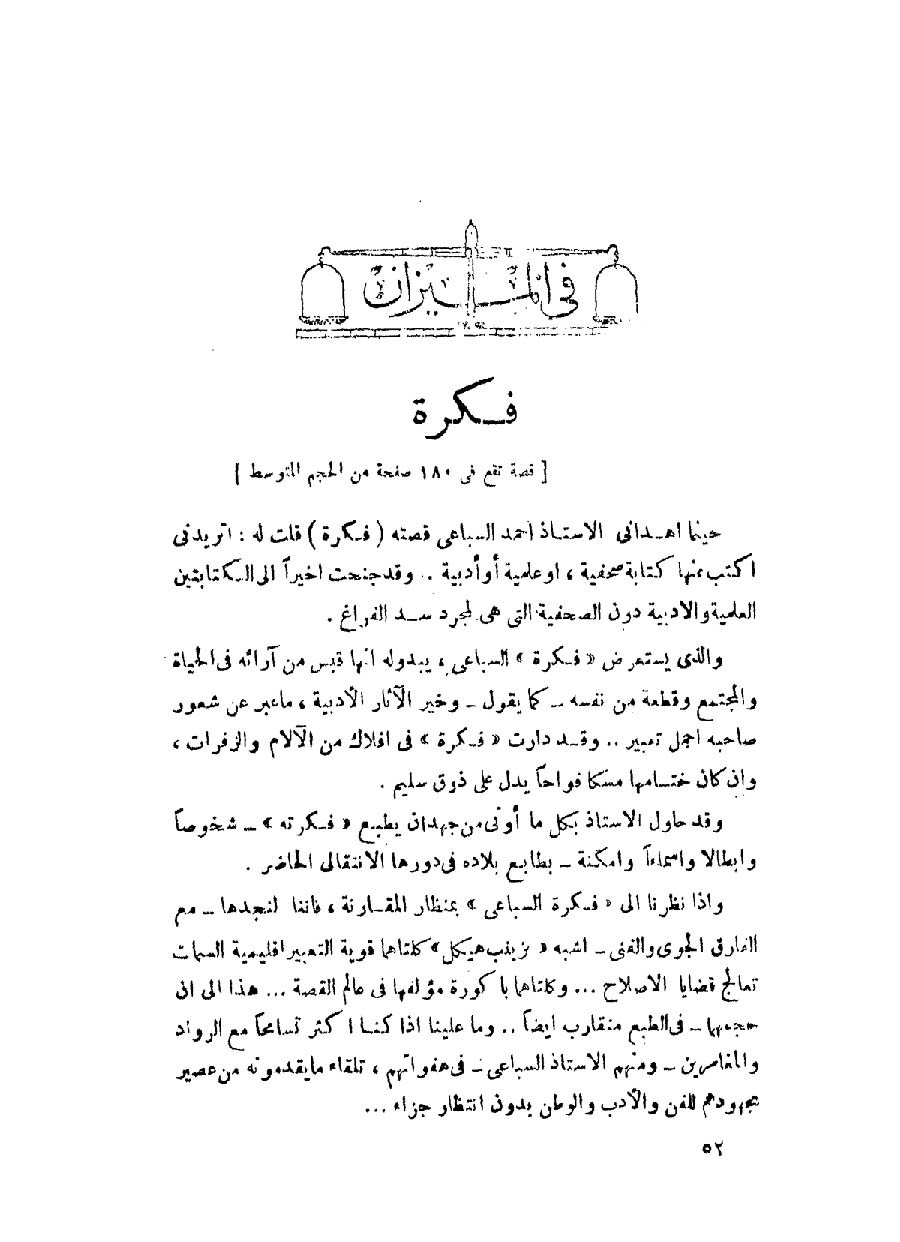 في الميزان
فـكرة
[ قصة تقع في ١٨٠ صفحة من الحجم المتوسط ]
حينما اهـداني الاستـاذ احمد السباعي قصته ( فـكرة ) قلت له : اتريدني
اكتب عنها كتابة صحفية ، او علمية أو أدبية .. وقد جنحت اخيراً الى الـكتابتين
العلمية والادبية دون الصحفية التي هي لمجرد سـد الفراغ .
والذى يستعرض « فـكرة » السباعي ، يبدو له انها قبس من آرائه في الحياة
والمجتمع وقطعة من نفسه ــ كما يقول ــ وخير الآثار الأدبية ، ما عبر عن شعور
صاحبه اجمل تعبير .. وقـد دارت « فـكرة » في افلاك من الآلام والزفرات ،
وان كان ختـامها مسكا فواحاً يدل على ذوق سليم .
وقد حاول الاستاذ بكل ما أوتي من جهد ان يطبع « فـكرته » ــ شخوصاً
وابطالا واسماءاً وامكنة ــ بطابع بلاده في دورها الانتقالى الحاضر .
واذا نظرنا الى « فـكرة السباعي » بمنظار المقـارنة ، فاننا لنجدها ــ مع
الفارق الجوي والفني ــ اشبه « بزينب هيكل » كلتاهما قوية التعبير اقليمية السمات
تعالج قضايا الاصلاح ... وكلتاهما باكورة مؤلفها في عالم القصة ... هذا الى ان
حجمهما ــ في الطبع متقارب ايضاً .. وما علينا اذا كنـا اكثر تسامحاً مع الرواد
والمغامرين ــ ومنهم الاستاذ السباعي ــ في هفواتهم ، تلقاء ما يقدمونه من عصير
مجهودهم للفن والأدب والوطن بدون انتظار جزاء ...
٥٢